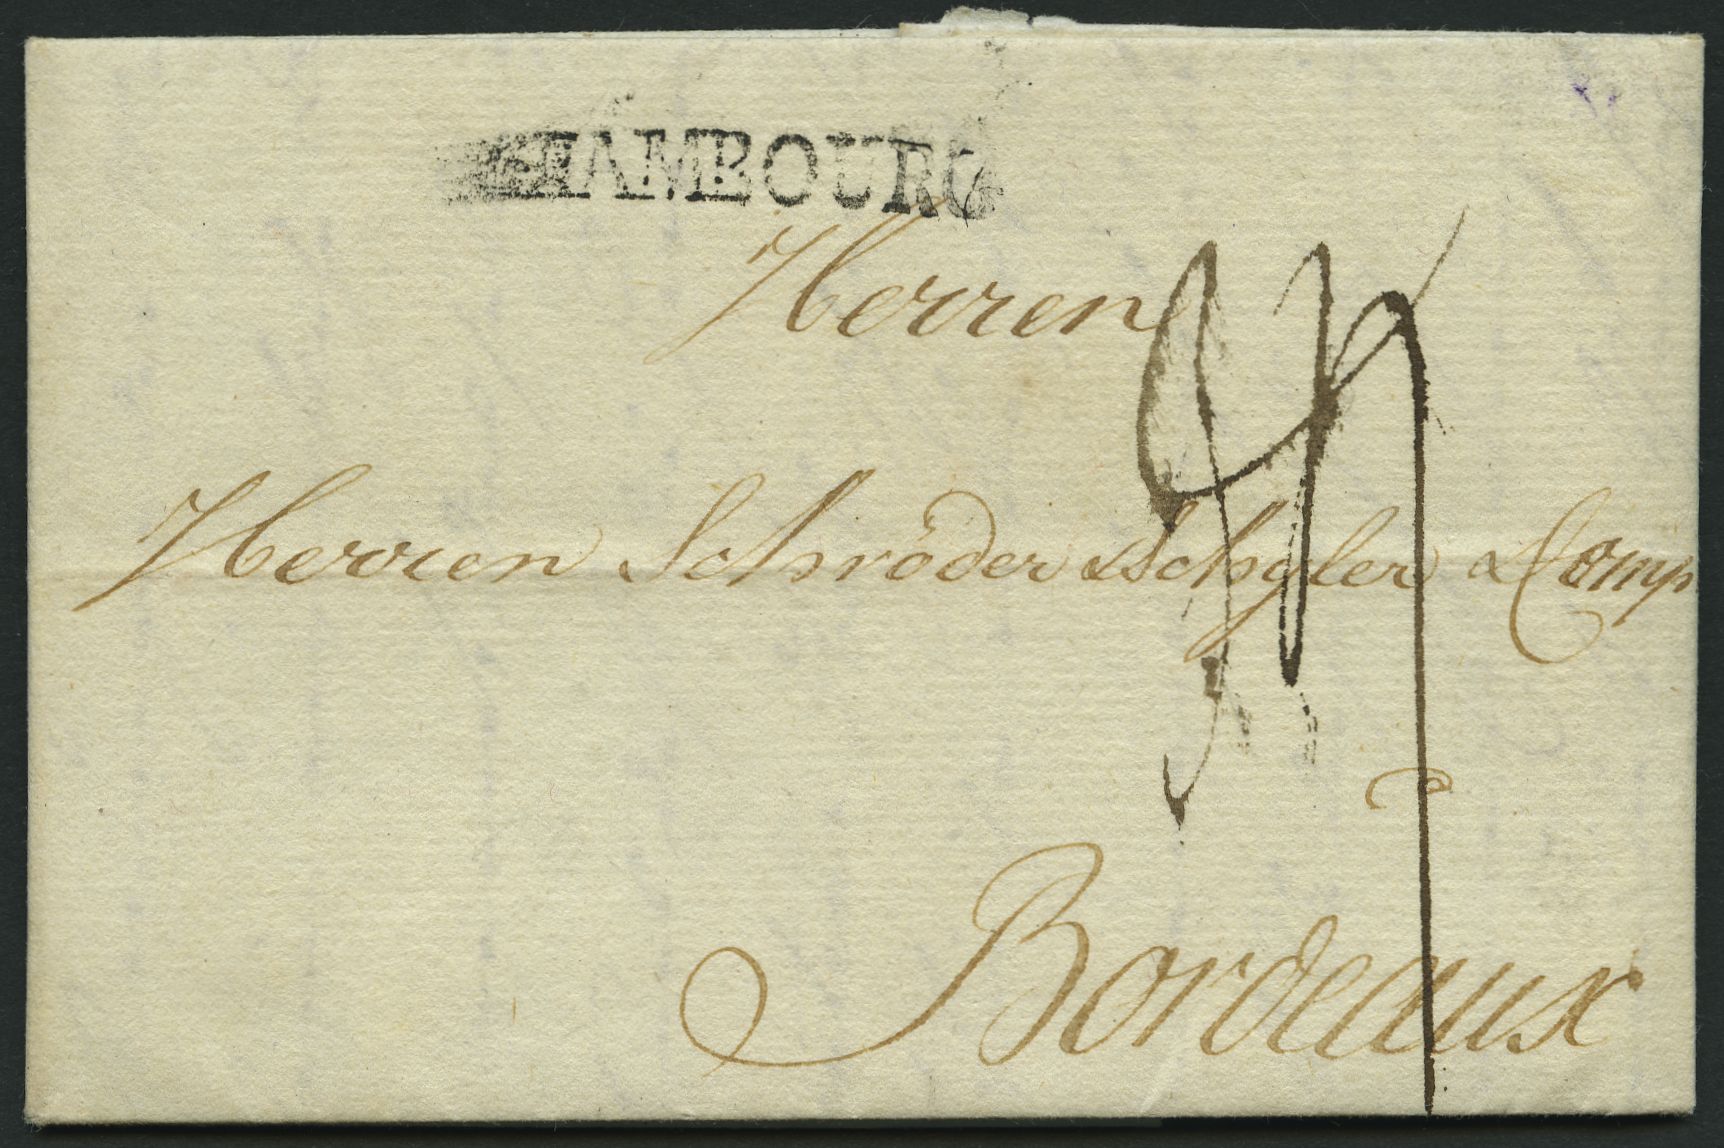 HAMBOURG
Herren
Herren Schröder & Schyler & Comp
à
Bordeaux